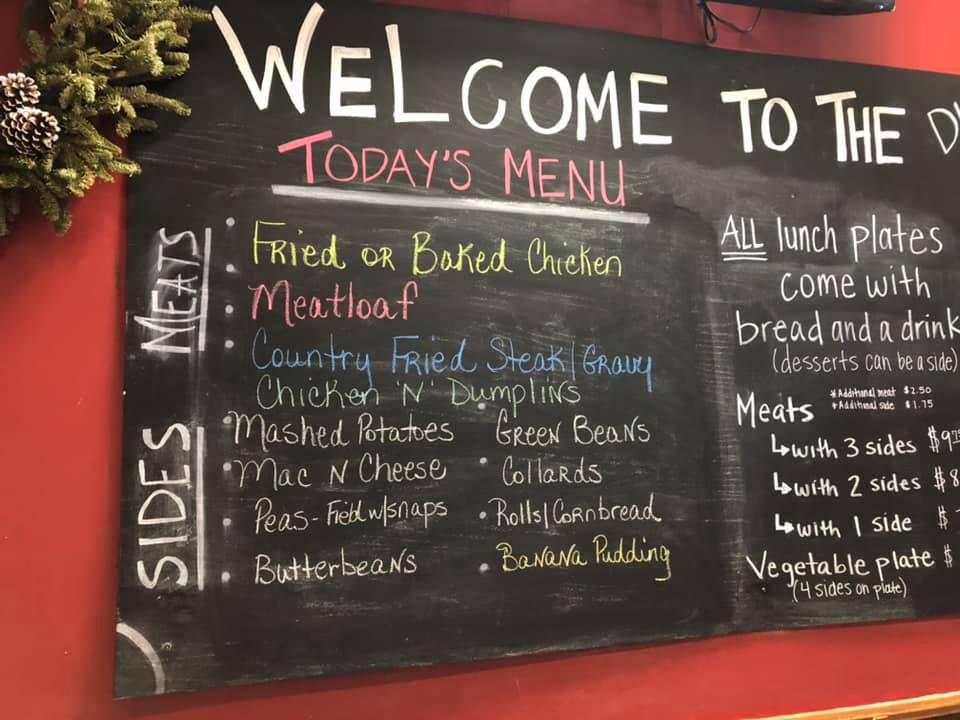 WELCOME TO THE
TODAY'S MENU
MEATS
Fried or Baked Chicken
Meatloaf
Country Fried Steak/Gravy
Chicken 'N' Dumplins
SIDES
Mashed Potatoes
Mac N Cheese
Peas - Field w/snaps
Butterbeans
Green Beans
Collards
Rolls/Cornbread
Banana Pudding
ALL lunch plates
come with
bread and a drink
(desserts can be a side)
Meats
*Additional meat $2.50
*Additional side $1.75
↳with 3 sides $9.75
↳with 2 sides $8
↳with 1 side $
Vegetable plate $
(4 sides on plate)